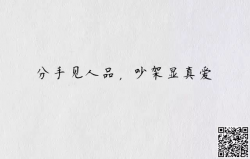 分手见人品，吵架显真爱